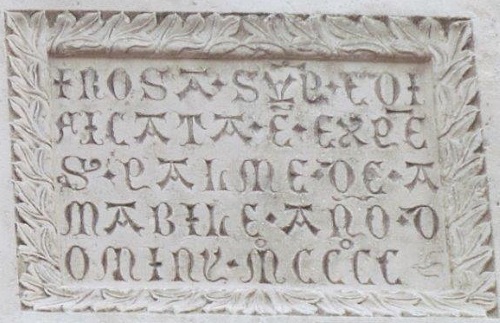 IROSA · SUP · EDI
FICATA · E · EXPE
S · PALME · DE · A
MABILE · AÑO · D
OMINY · MCCCC